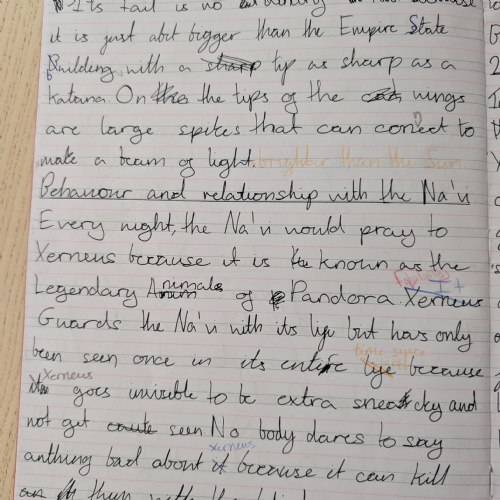 Its tail is no
it is just abit bigger than the Empire State
Building with a sharp tip as sharp as a
katana. On the the tips of the wings
are large spikes that can conect to
make a beam of light. brighter than the Sun.
Behaviour and relationship with the Na'vi
Every night, the Na'vi would pray to
Xerneus because it is the known as the
Legendary Animals of Pandora. Xerneus
Guards the Na'vi with its life but has only
been seen once in its entire life because
Xerneus goes invisible to be extra sneaky and
not get seen No body dares to say
anthing bad about it xerneus because it can kill
them with